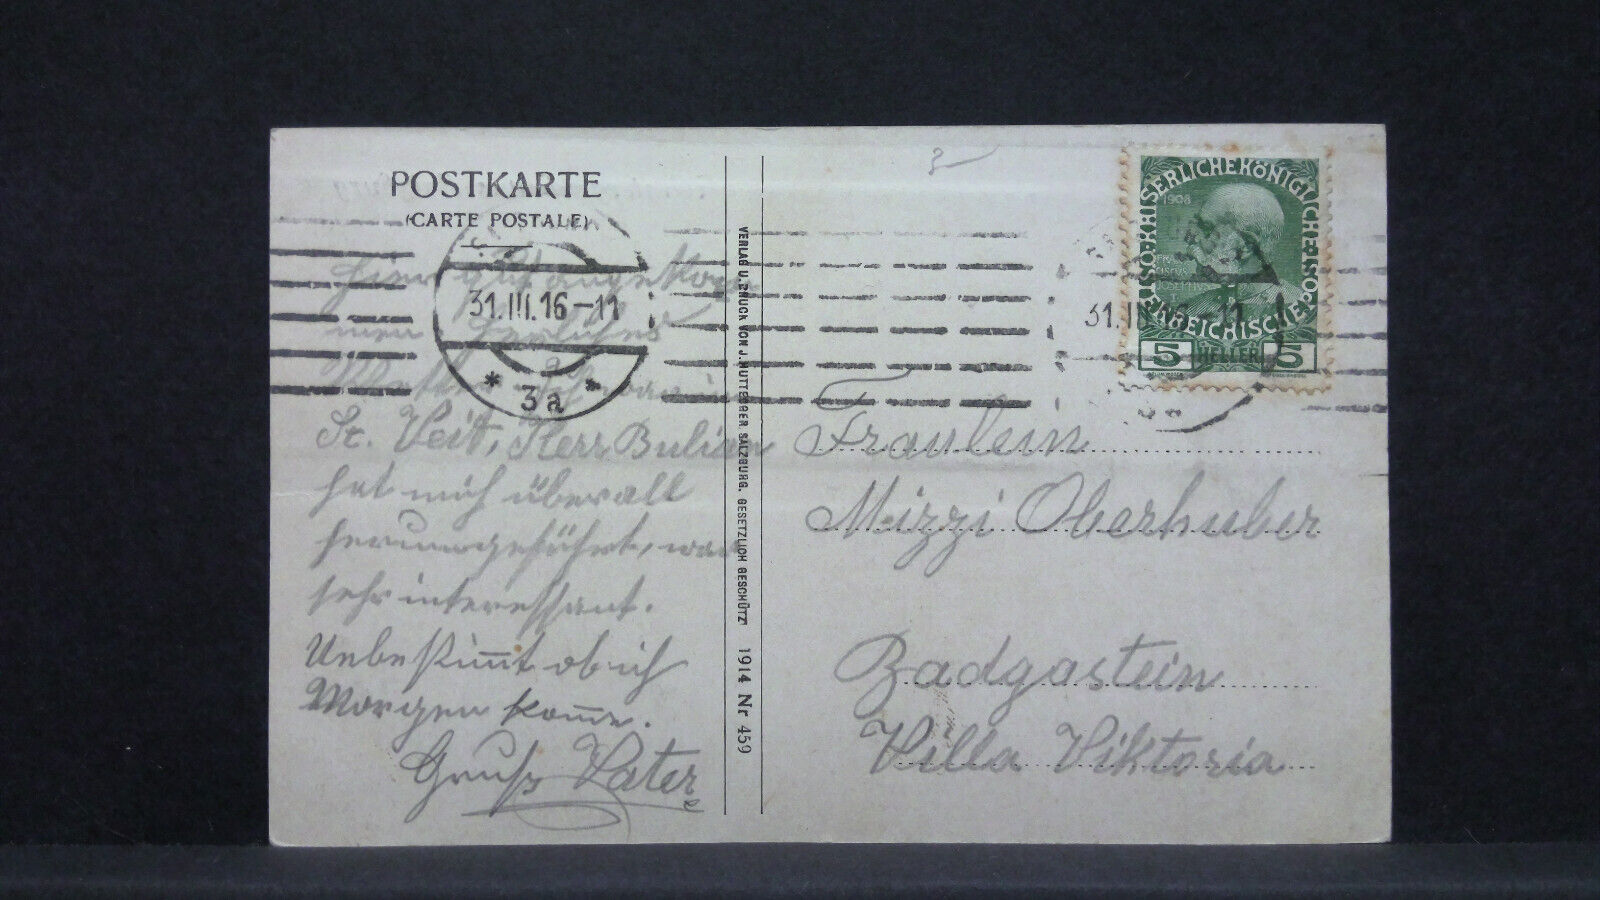 POSTKARTE
(CARTE POSTALE)
31.III.16-11
* 3a *
gut angekom
men
St. Veit, Herr Bulian
hat mich überall
herumgeführt, war
sehr interessant.
Unbestimmt ob ich
Morgen komme.
Gruß Vater
VERLAG U. DRUCK VON J. HUTTEGGER SALZBURG. GESETZLICH GESCHÜTZT 1914 Nr 459
KAISERLICHE KÖNIGLICHE ÖSTERREICHISCHE POST
1908
FRANCISCUS
JOSEPHUS
I.
5 HELLER 5
31.III.16-11
Fräulein
Mizzi Oberhuber
Badgastein
Villa Viktoria